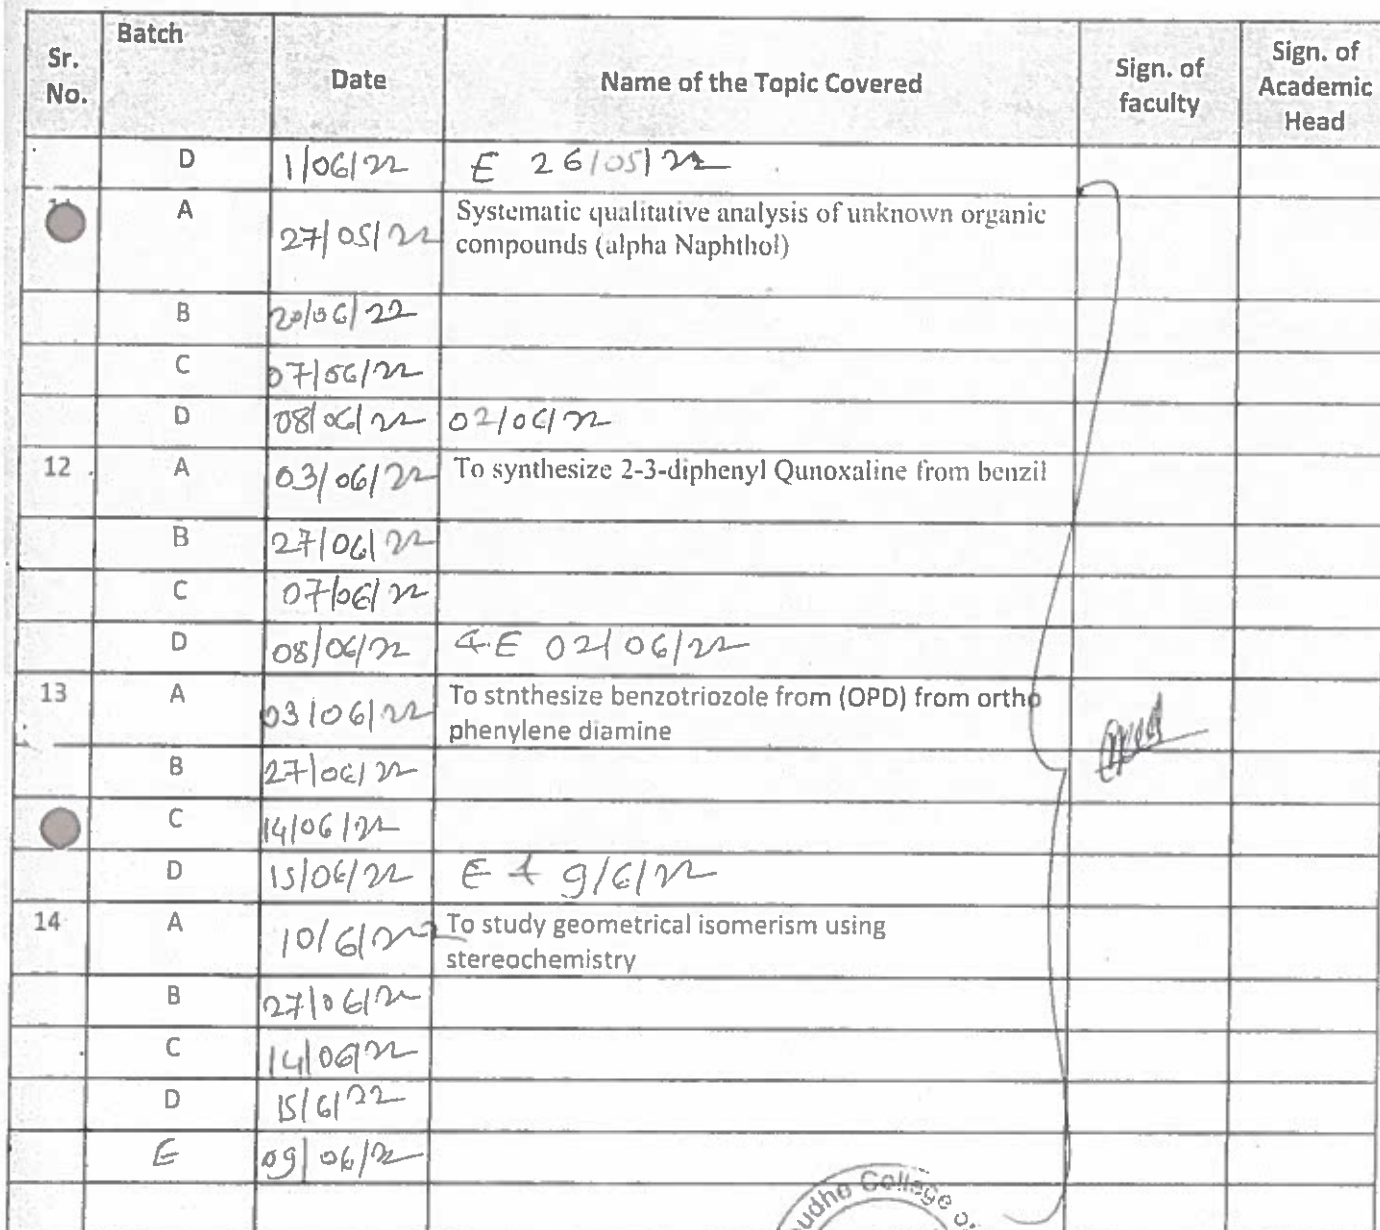 Sr. No. Batch Date Name of the Topic Covered Sign. of faculty Sign. of Academic Head
D 1/06/22 E 26/05/22
A 27/05/22 Systematic qualitative analysis of unknown organic
compounds (alpha Naphthol)
B 20/06/22
C 07/06/22
D 08/06/22 02/06/22
12 A 03/06/22 To synthesize 2-3-diphenyl Qunoxaline from benzil
B 27/06/22
C 07/06/22
D 08/06/22 E 02/06/22
13 A 03/06/22 To stnthesize benzotriozole from (OPD) from ortho
phenylene diamine
B 27/06/22
C 14/06/22
D 15/06/22 E 9/6/22
14 A 10/6/22 To study geometrical isomerism using
stereochemistry
B 27/06/22
C 14/06/22
D 15/6/22
E 09/06/22
College